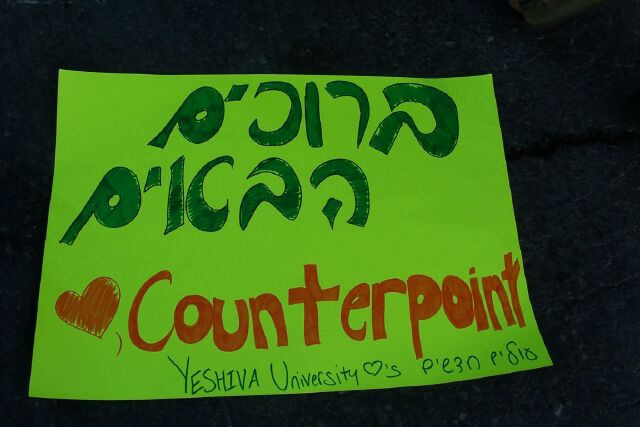 ברוכים
הבאים
♥, Counterpoint
YESHIVA University ♡'s עולים חדשים